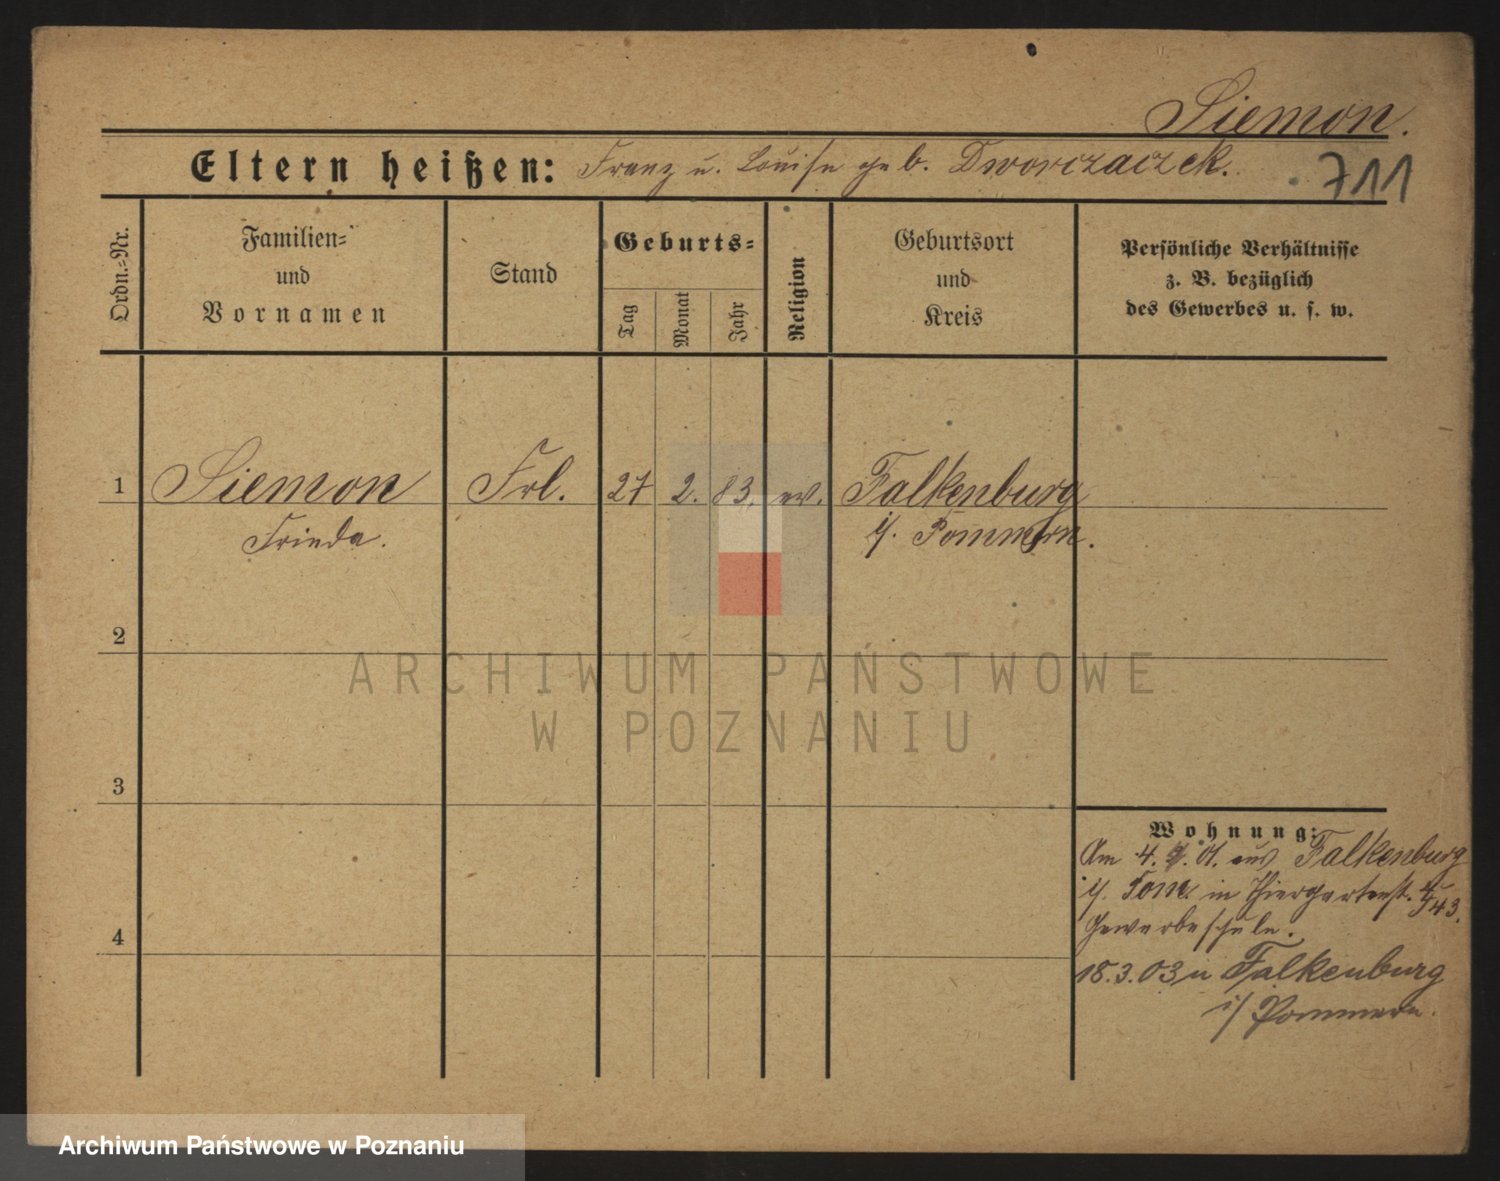 Siemon.
Eltern heißen: Franz u. Louise geb. Dworczaczek.
711
Ordn.-Nr.
Familien-
und
Vornamen
Stand
Geburts-
Tag
Monat
Jahr
Religion
Geburtsort
und
Kreis
Persönliche Verhältnisse
z. B. bezüglich
des Gewerbes u. s. w.
1 Siemon Frl. 27 2. 83. ev. Falkenburg
Frieda. i/. Pommern.
2
3
4
Wohnung:
Am 4. 01. aus Falkenburg
i/. Pom. in Thiergartenst.
Gewerbeschule.
18.3.03 n Falkenburg
i/ Pommern.
ARCHIWUM PAŃSTWOWE
W POZNANIU
Archiwum Państwowe w Poznaniu